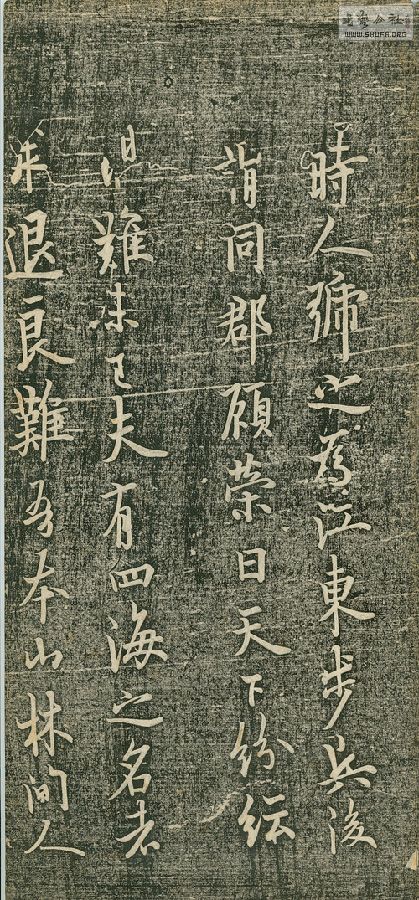 時人號之為江東步兵後
謂同郡顧榮曰天下紛紜
禍難未已夫有四海之名者
求退良難吾本山林間人
書藝公社
WWW.SHUFA.ORG